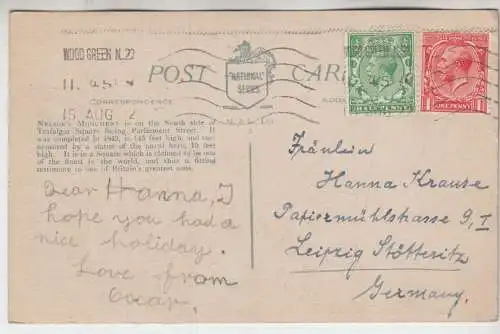 WOOD GREEN N.22
11.45
15 AUG 2
POST CAR
"NATIONAL"
SERIES
CORRESPONDENCE
HALFPENNY
ONE PENNY
NELSON'S MONUMENT is on the South side of
Trafalgar Square facing Parliament Street. It
was completed in 1849, is 145 feet high, and sur-
mounted by a statue of the naval hero, 16 feet
high. It is in a Square which is claimed to be one
of the finest in the world, and thus a fitting
testimony to one of Britain's greatest sons.
Dear Hanna, I
hope you had a
nice holiday.
Love from
Oscar.
Fräulein
Hanna Krause
Papiermühlstrasse 9, I
Leipzig Stötteritz
Germany.